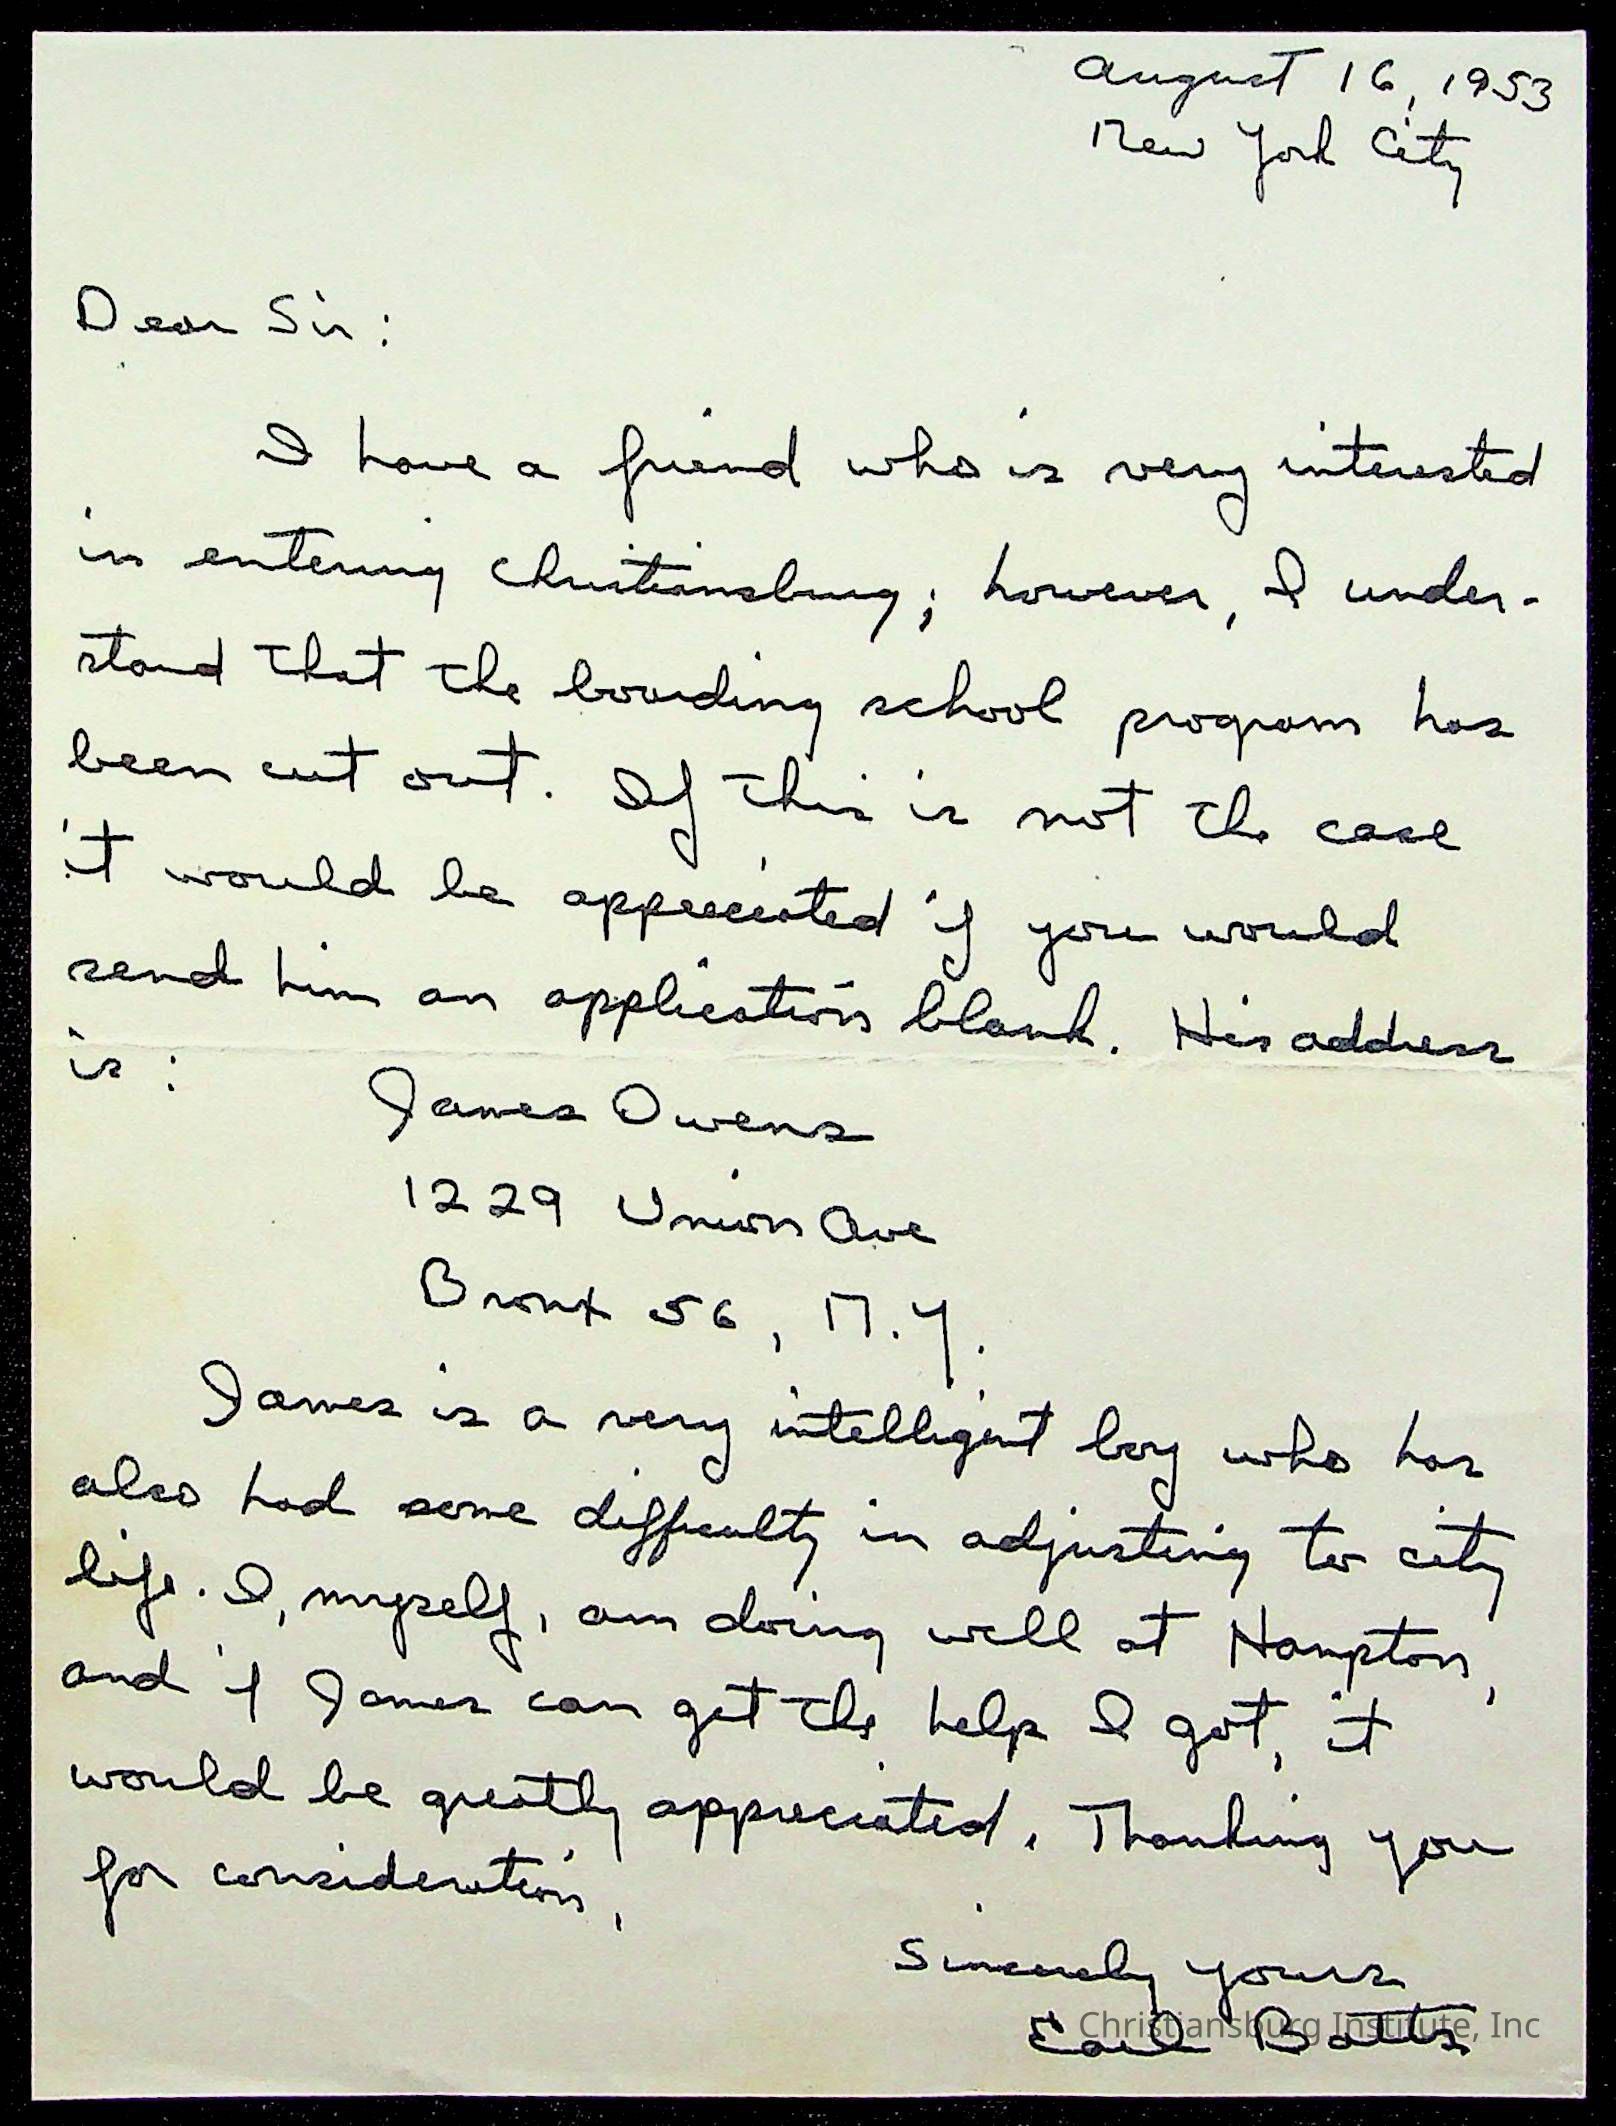 August 16, 1953
New York City
Dear Sir:
I have a friend who is very interested
in entering Christiansburg; however, I under-
stand that the boarding school program has
been cut out. If this is not the case
it would be appreciated if you would
send him an application blank. His address
is:
James Owens
1229 Union Ave
Bronx 56, N.Y.
James is a very intelligent boy who has
also had some difficulty in adjusting to city
life. I, myself, am doing well at Hampton,
and if James can get the help I got, it
would be greatly appreciated. Thanking you
for consideration,
Sincerely yours
Earl Batts
Christiansburg Institute, Inc